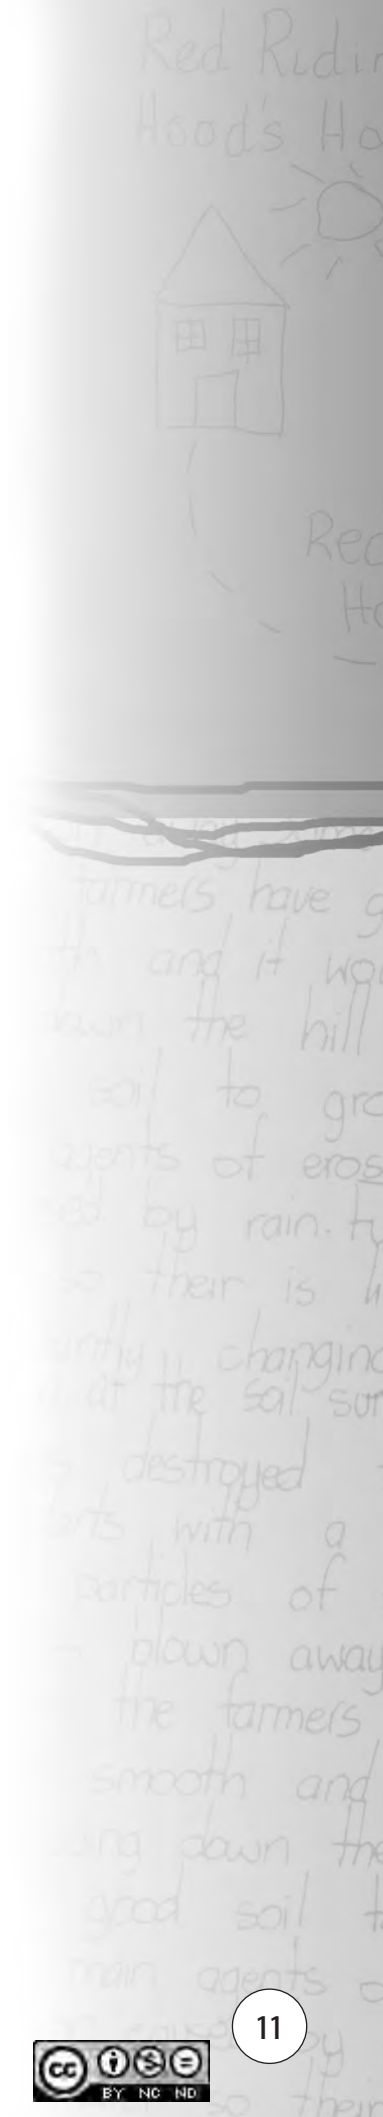 Red Ridin
Hood's Ho
Red
Ho
farmers have g
and it wou
down the hill
soil to gro
agents of eros
by rain. ty
so their is li
changing
at the soil sur
destroyed
with a
particles of
blown away
the farmers
smooth and
down the
good soil t
main agents o
11
by
so their
cc
BY NC ND